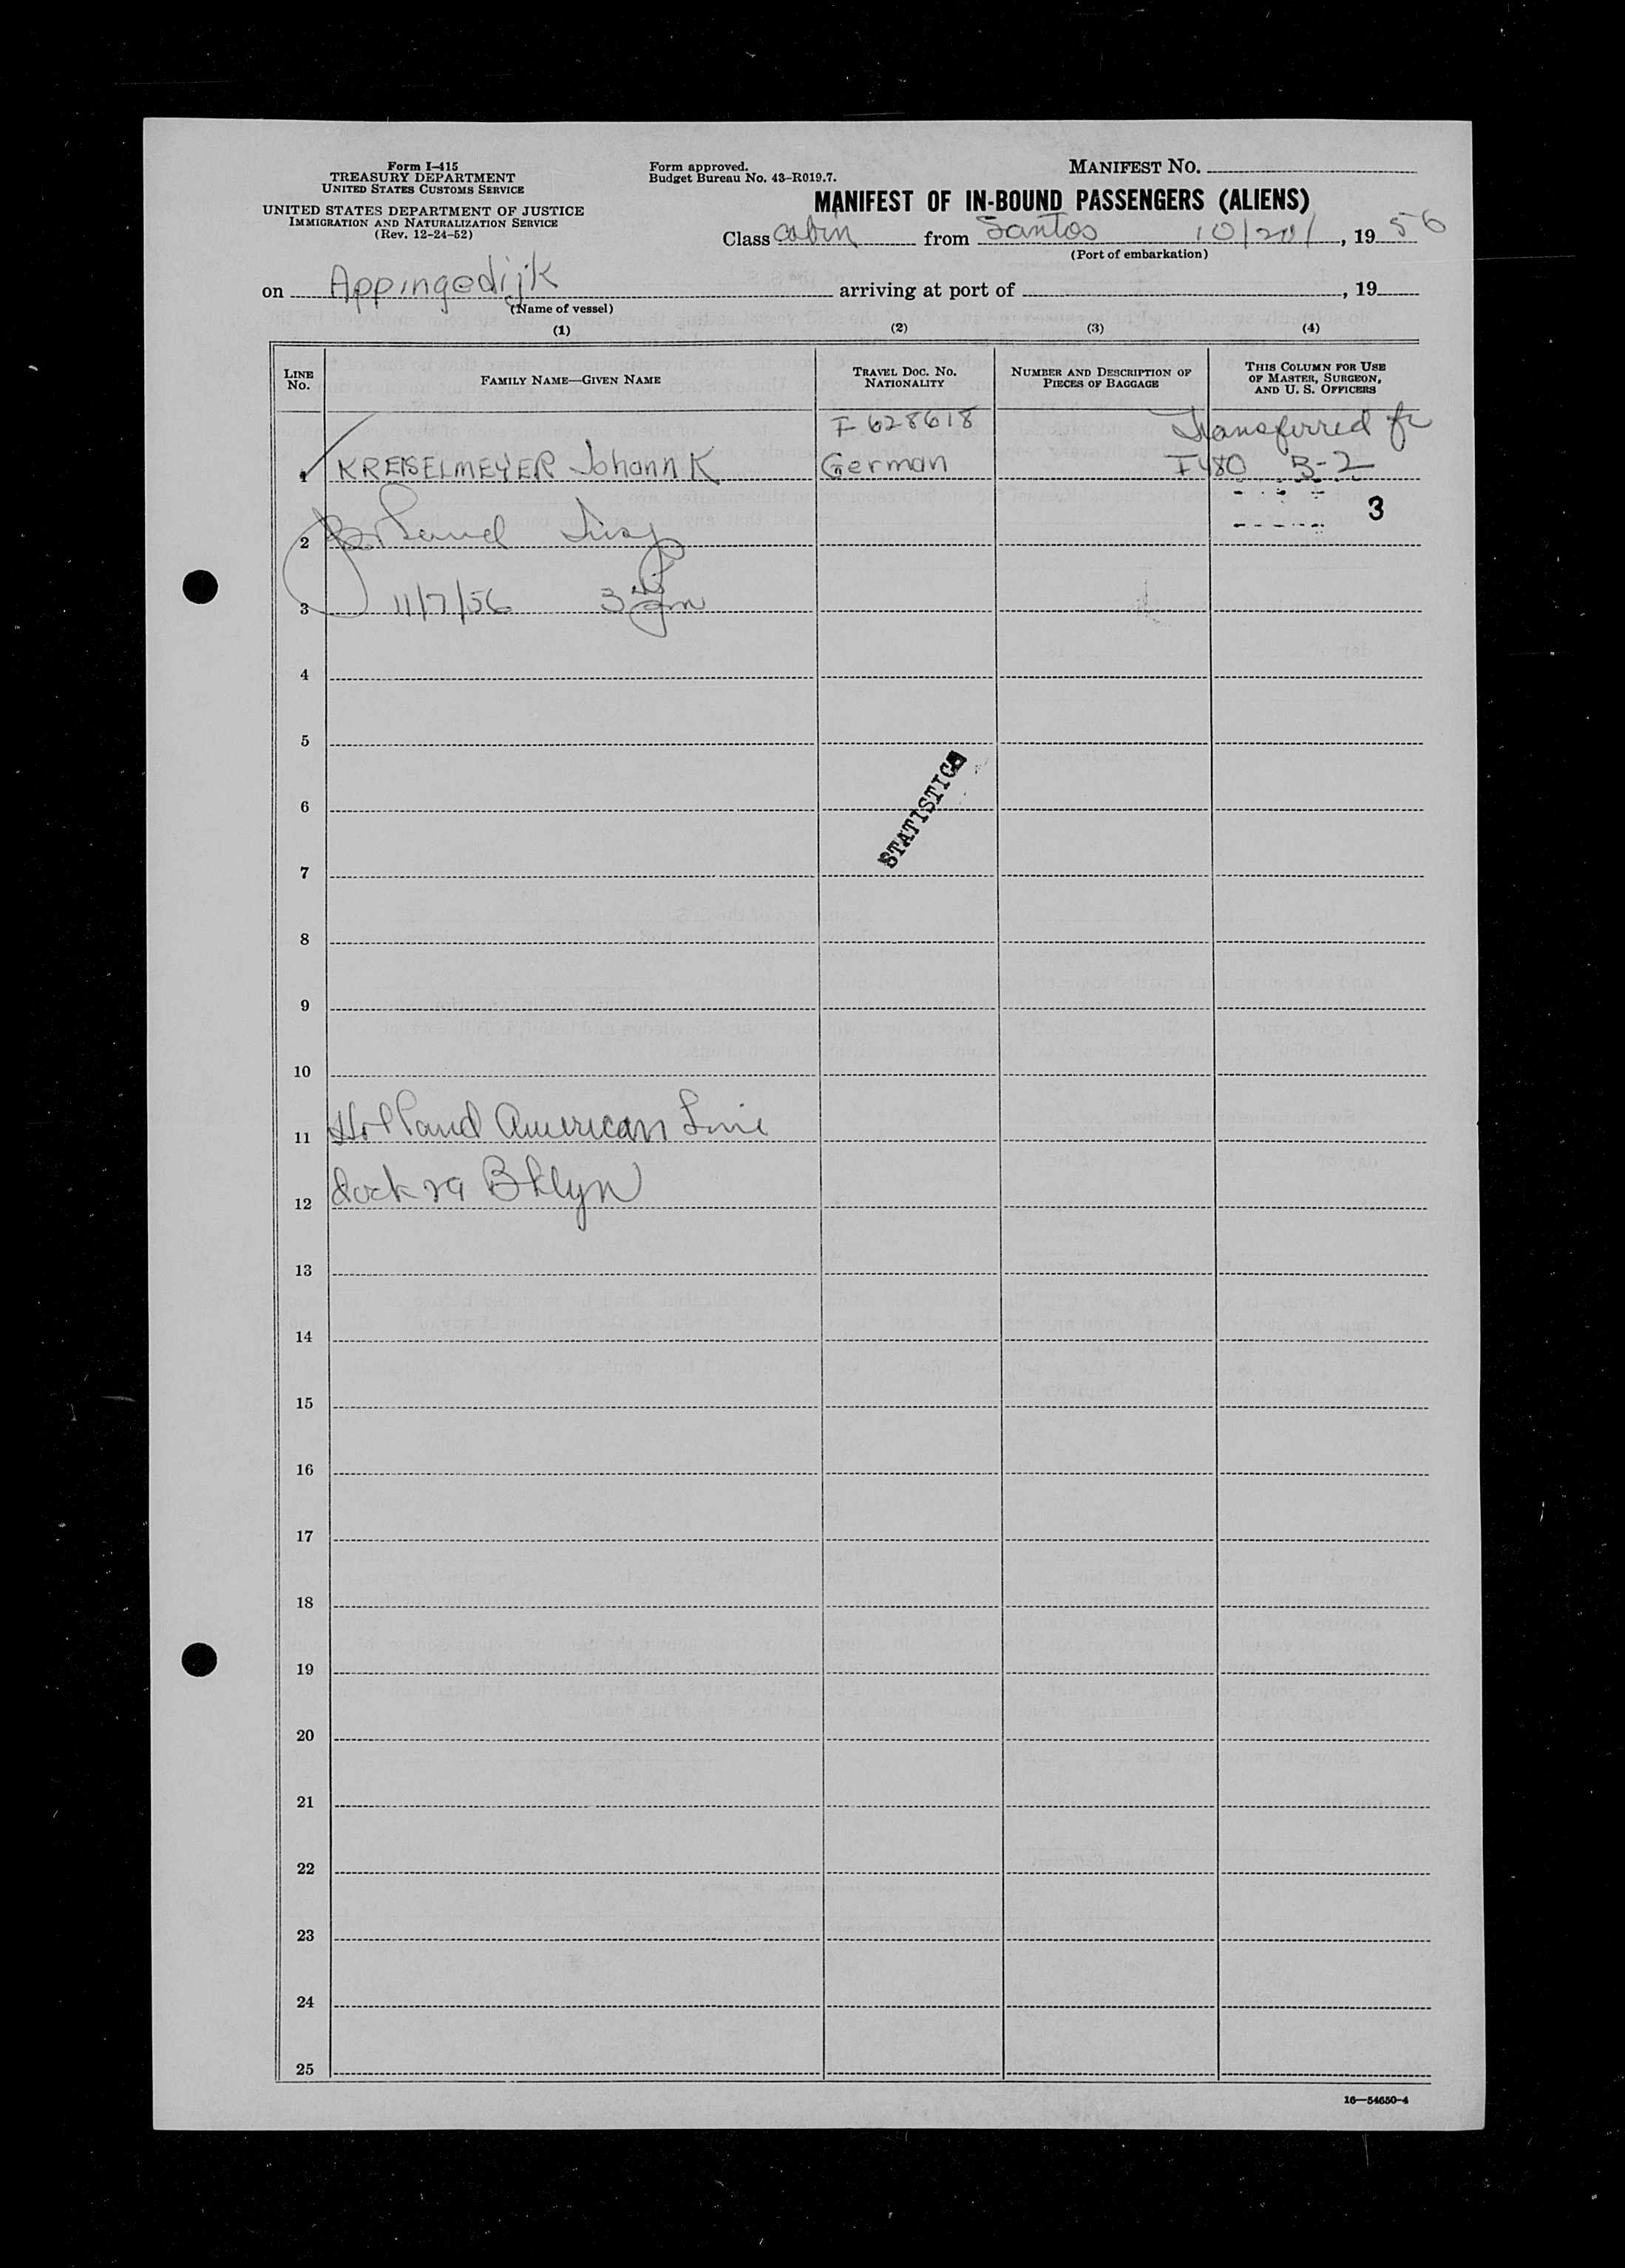 Form I-415
TREASURY DEPARTMENT
UNITED STATES CUSTOMS SERVICE
UNITED STATES DEPARTMENT OF JUSTICE
IMMIGRATION AND NATURALIZATION SERVICE
(Rev. 12-24-52)
Form approved.
Budget Bureau No. 43-R019.7.
MANIFEST No.
MANIFEST OF IN-BOUND PASSENGERS (ALIENS)
Class cabin from Santos 10/20/, 1956
(Port of embarkation)
on Appingedijk arriving at port of , 19
(Name of vessel)
(1) (2) (3) (4)
LINE No. FAMILY NAME—GIVEN NAME TRAVEL DOC. No. NATIONALITY NUMBER AND DESCRIPTION OF PIECES OF BAGGAGE THIS COLUMN FOR USE OF MASTER, SURGEON, AND U. S. OFFICERS
F 628618 Transferred fr
1 KREISELMEYER Johann K German I480 B-2
3
2 Insp
3 11/7/56
4
5
STATISTICS
6
7
8
9
10
11 Holland American Line
12 dock Bklyn
13
14
15
16
17
18
19
20
21
22
23
24
25
16—54650-4